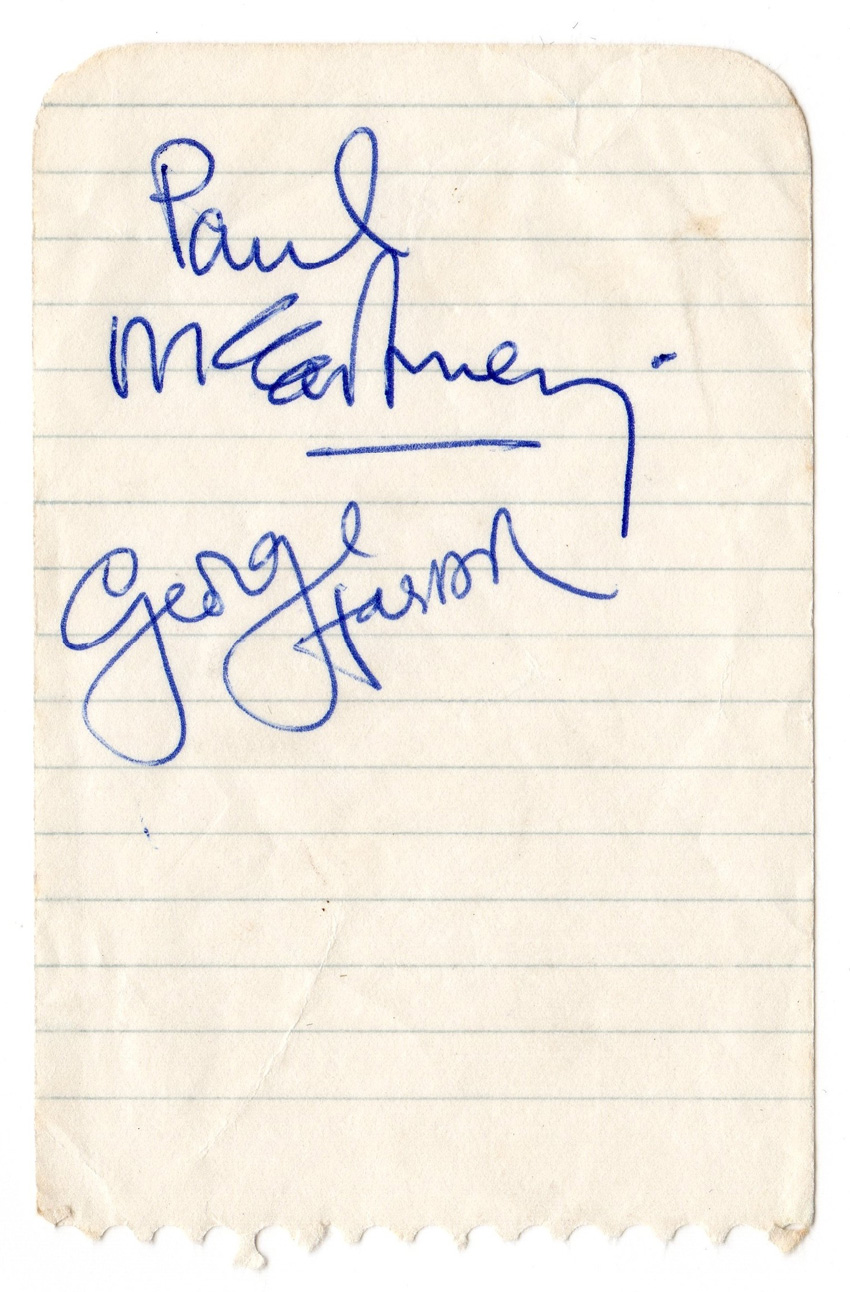 Paul
McCartney
George Harrison